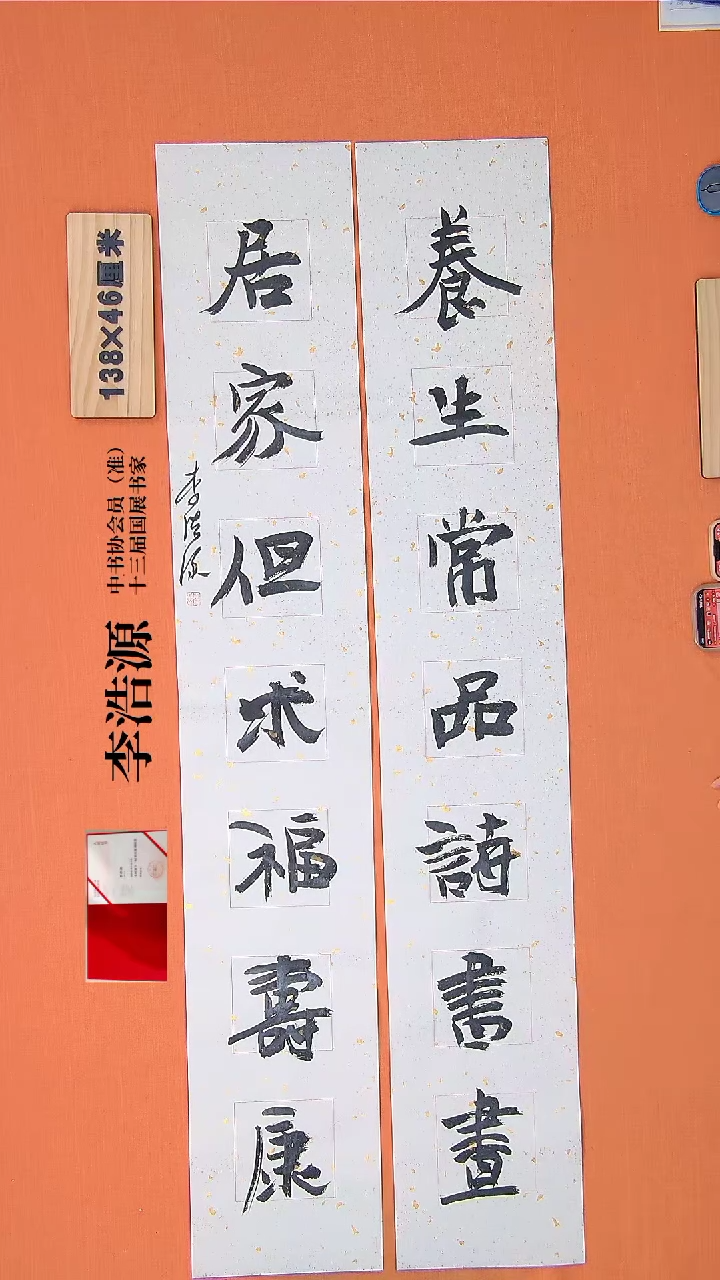 養生常品詩書畫
居家但求福壽康
李浩源
138×46厘米
中书协会员（准）
十三届国展书家
李浩源